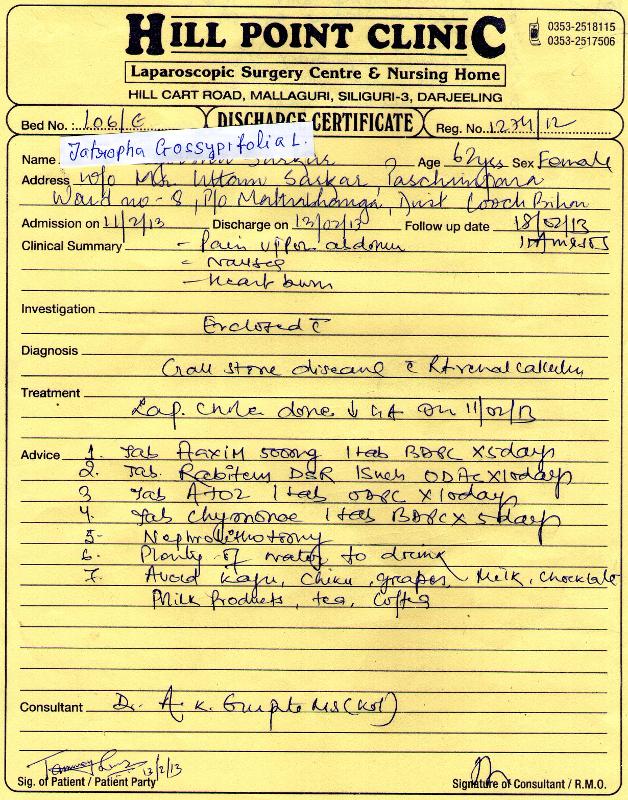 HILL POINT CLINIC
0353-2518115
0353-2517506
Laparoscopic Surgery Centre & Nursing Home
HILL CART ROAD, MALLAGURI, SILIGURI-3, DARJEELING
Bed No.: 106/C DISCHARGE CERTIFICATE Reg. No. 1274/12
Jatropha Gossypifolia L.
Name Sarkar Age 62yrs Sex Female
Address w/o Mr. Uttam Sarkar, Paschimpara
Ward no-8, P/o Mathabhanga, Dist Cooch Bihar
Admission on 11/2/13 Discharge on 13/02/13 Follow up date 18/02/13
Clinical Summary - Pain upper abdomen
- Nausea
- Heart burn
Investigation
Enclosed c̄
Diagnosis
Gall stone disease c̄ Rt renal calculus
Treatment
Lap. chole done ↓ GA on 11/02/13
Advice 1. Tab 500mg 1 tab BDPC x 5days
2. Tab. DSR ODAC x 10days
3 Tab 1 tab ODPC x 10days
4. Tab 1 tab BDPC x 5days
5- Nephrolithotomy
6. Plenty of water to drink
7. Avoid kaju, chiku, grapes, Milk, chocklate
Milk Products, tea, Coffee
Consultant Dr. A. K. Gupta MS (Kol)
13/2/13
Sig. of Patient / Patient Party Signature of Consultant / R.M.O.